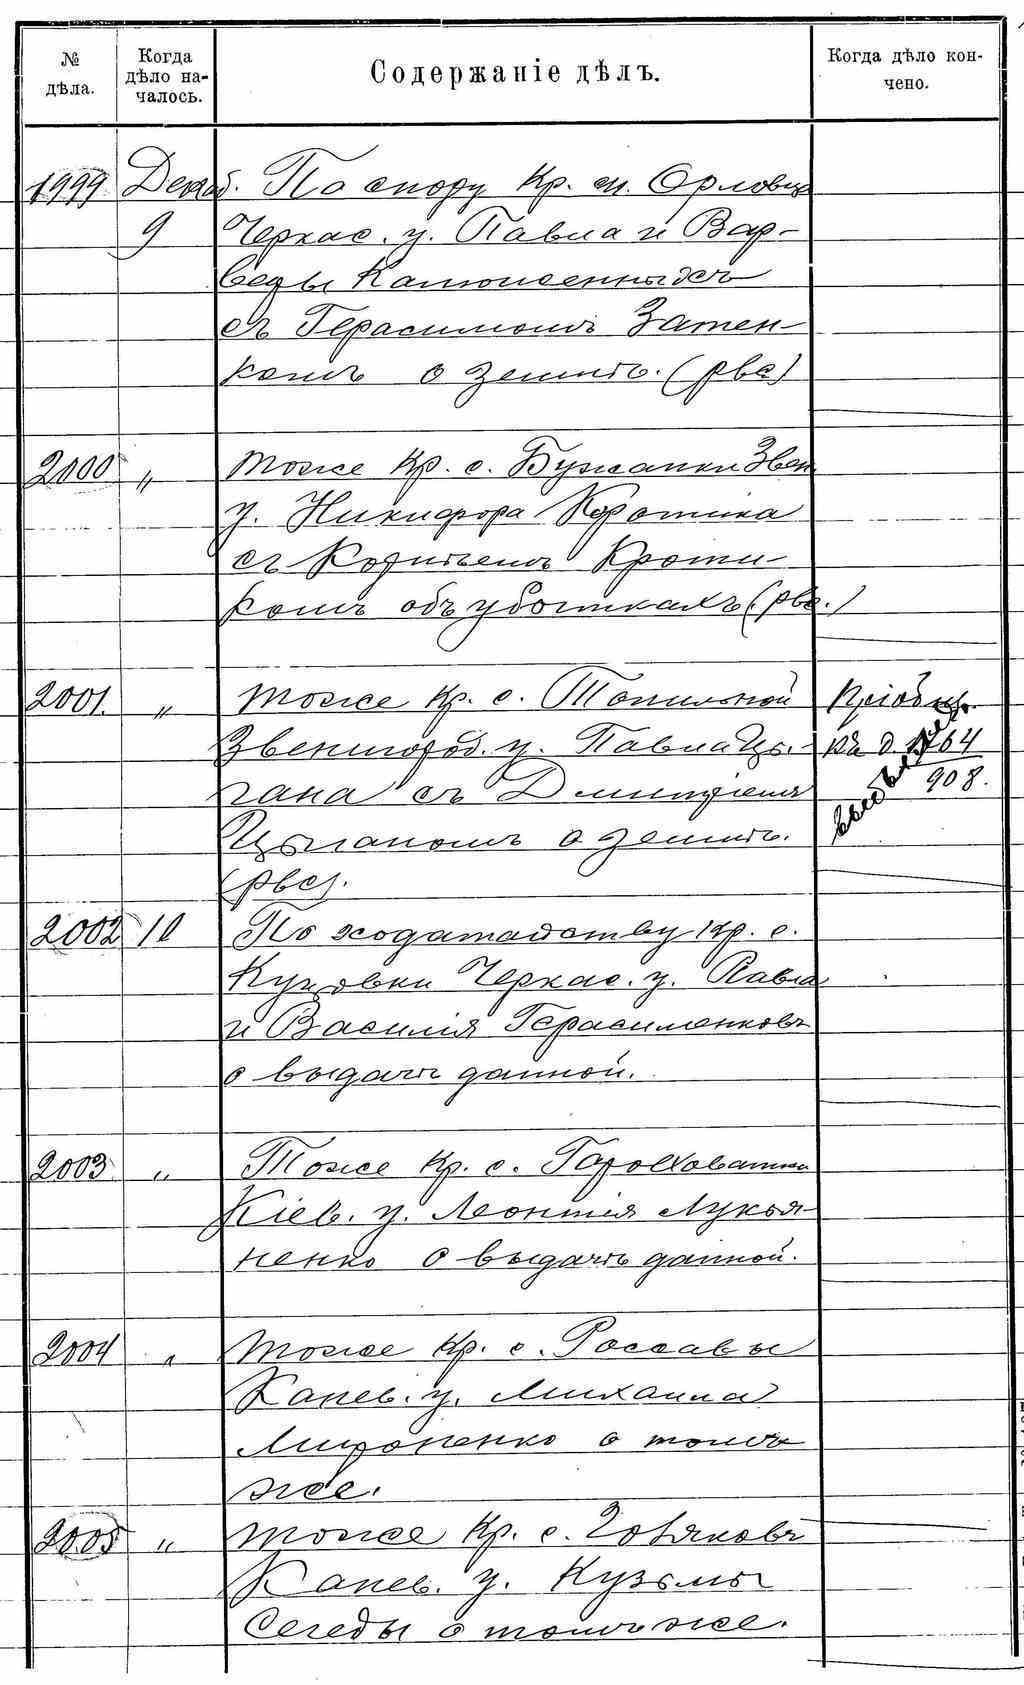 № дѣла.
Когда дѣло началось.
Содержаніе дѣлъ.
Когда дѣло кончено.
1999 Декаб. По спору кр. м. Орловца
9 Черкас. у. Павла и Вар-
вары
съ Герасимомъ Затен-
комъ о землѣ. (рвс)
2000 " тоже кр. с. Бужанки Звен.
у. Никифора Коротика
съ Корнѣемъ Кроти-
комъ объ убыткахъ (рвс.)
2001. " тоже кр. с. Топильной Пріобщ.
Звенигород. у. Павла Цы- къ д.
гана съ Дмитріемъ 908.
Цыганомъ о землѣ.
(рвс).
2002 10 По ходатайству кр. с.
Куцовки Черкас. у. Павла
и Василія Герасименковъ
о выдачѣ данной.
2003 " Тоже кр. с. Гороховатки
Кіев. у. Леонтія Лукья-
ненко о выдачѣ данной.
2004 " тоже кр. с. Россавы
Канев. у. Михаила
Мироненко о томъ
же.
2005 " тоже кр. с.
Канев. у. Кузьмы
Сегеды о томъ же.